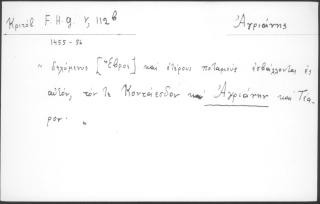 Κριτόβ F.H.G. V, 112β Ἀγριάνης
1455-56
" δεχόμενος [Ἕβρος] καὶ ἑτέρους ποταμοὺς ἐσβάλλοντας ἐς
αὐτόν, τόν τε Κοντάεσδον καὶ Ἀγριάνην καὶ Τέα-
ρον. "